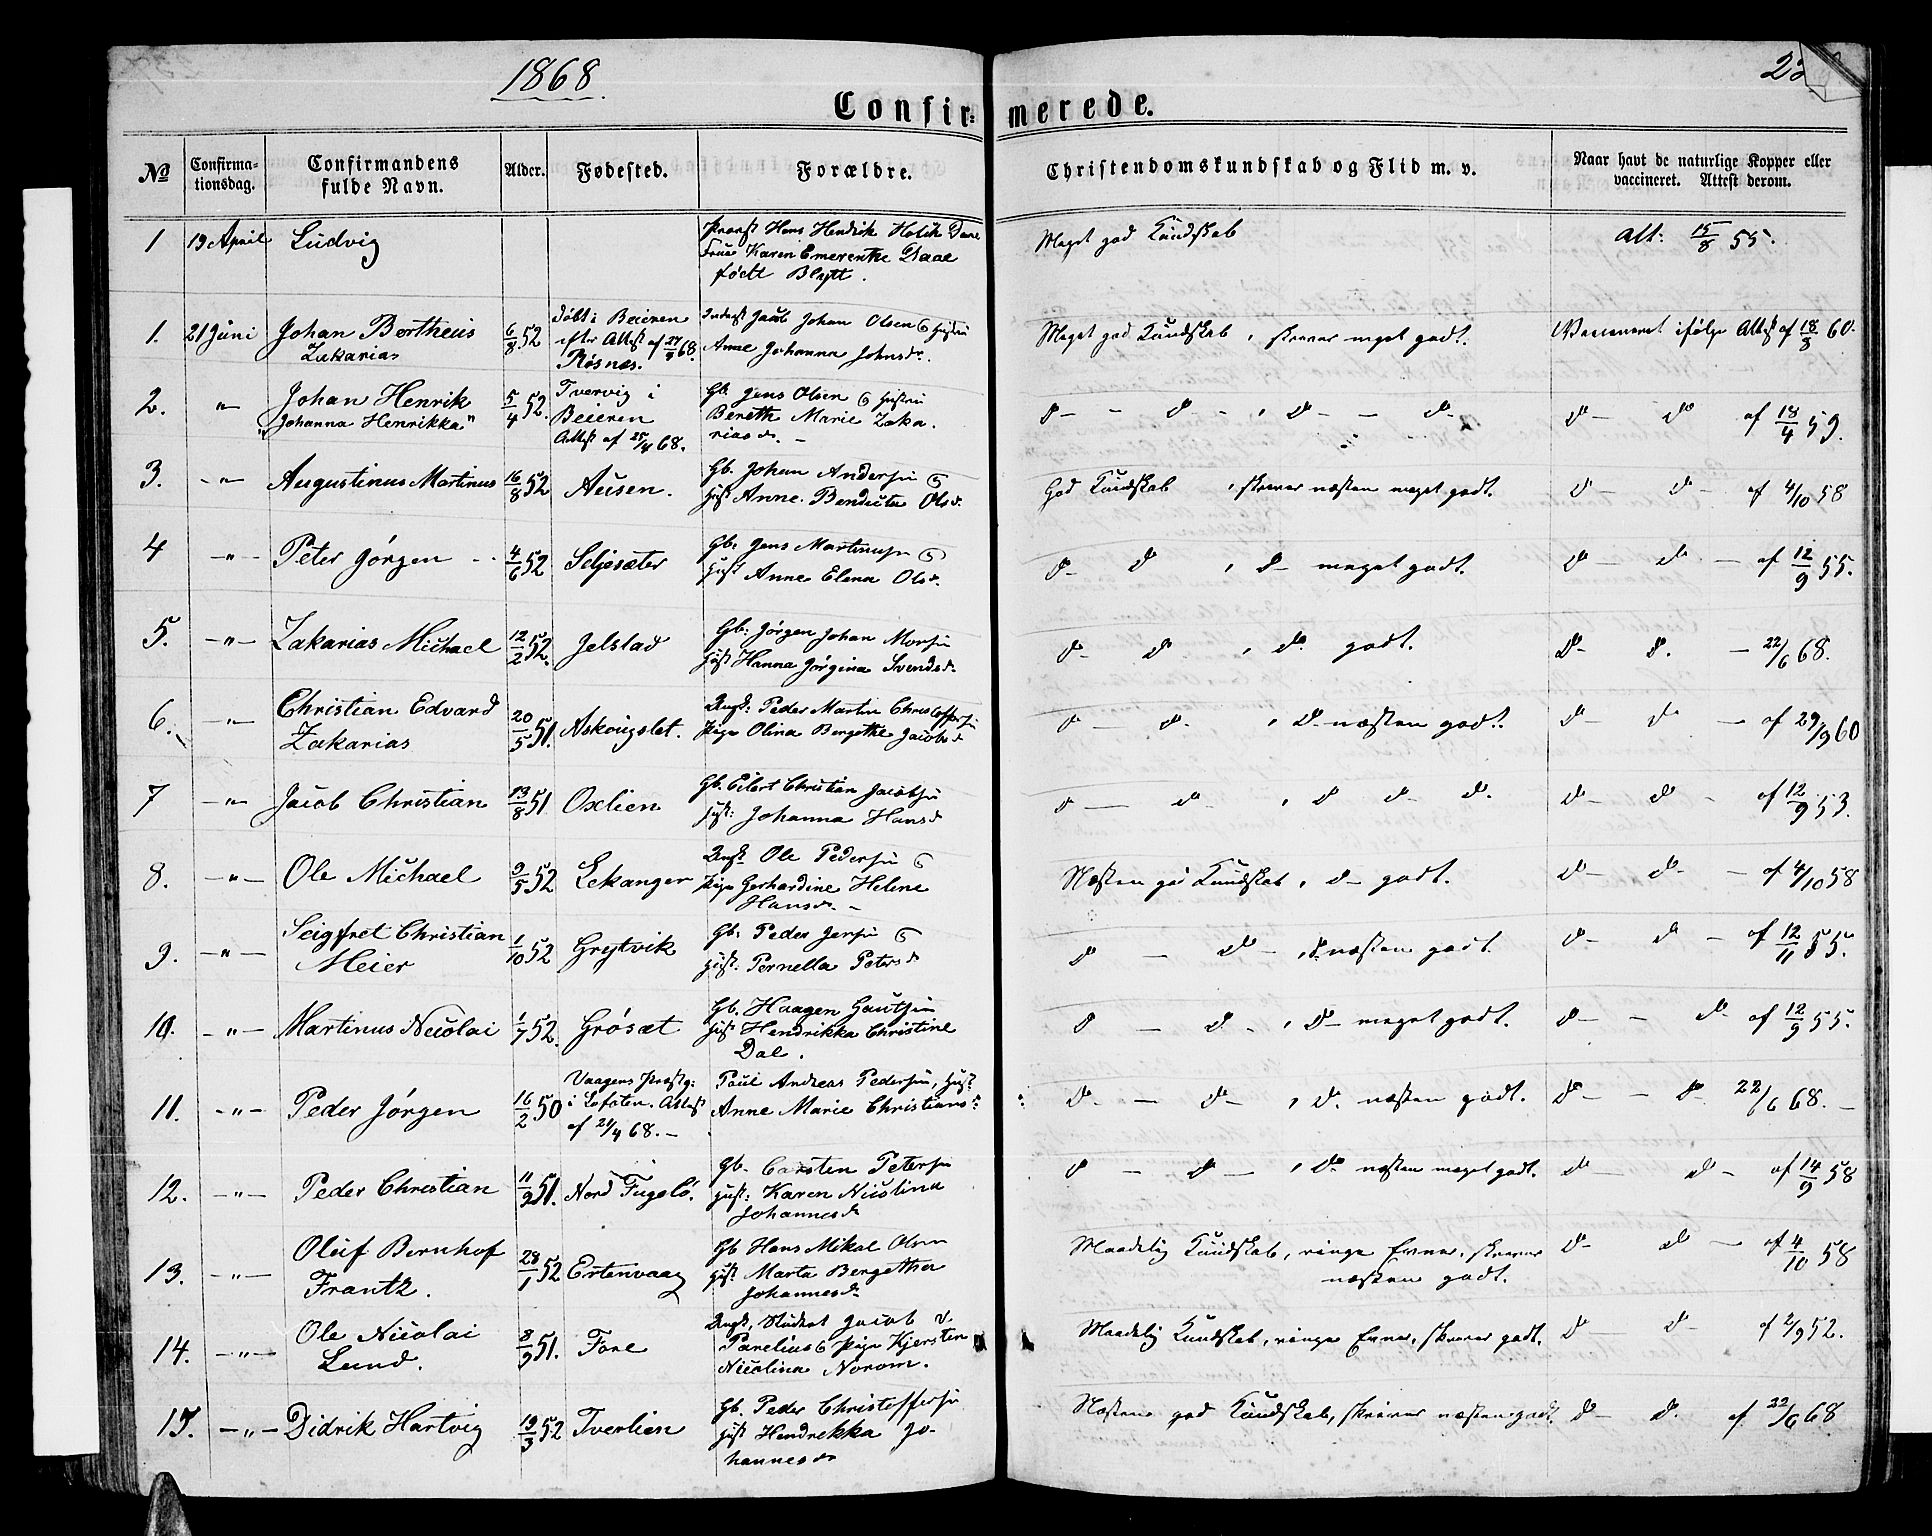 1868.
Confirmerede.
№
Confirma-
tionsdag.
Confirmandens
fulde Navn.
Alder.
Fødested.
Forældre.
Christendomskundskab og Flid m. v.
Naar havt de naturlige Kopper eller
vaccineret. Attest derom.
1 19 April Ludvig
Hans Hendrik
Karen Emerenthe Daae
født Blytt.
Meget god Kundskab
Att: 15/8 55.
1. 21 Juni Johan Bertheus
Zakarias
6/8 52
døbt i Beieren
efter Attest af 68.
Røsnæs.
Jacob Johan Olsen
Anne Johanna Johnsd.
Meget god Kundskab, skrever meget godt.
Vaccineret ifølge Attest af 18/8 60.
2. -"- Johan Henrik
"Johanna Henrikka"
5/4 52.
Tvervig i
Beieren
Attest af 25/4 68.
Gb. Jens Olsen G Hustru
Bereth Marie Zaka
riasd. -
d- - d- , d- - d-
d- d- af 18/4 59.
3. -"- Augustinus Martinus 16/8 52 Ausen.
Gb. Johan Andersen G
Hust Anne Bendicta Olsd.
God Kundskab , skrever næsten meget godt.
d- d- af 4/10 58
4 -"- Peter Jørgen 4/6 52 Seljesæter
Gb: Jens G
Hust Anne Elena Olsd.
d- d , d- meget godt.
d- d- - af 12/9 55.
5. -"- Zakarias Michael 12/2 52. Jelstad
Gb: Jørgen Johan
Hust Hanna Jørgina Svendsd.
d- d , d. godt.
d- d. - 22/6 68.
6. -"- Christian Edvard
Zakarias
20/5 51. Askougslet.
Ungk: Peder Martin Christoffersen
Pige Olina Bergethe Jacobsd
d- d. , d- næsten godt.
d- d- - af 29/9 60
7 -"- Jacob Christian 13/8 51 Oxlien
Gb. Eilert Christian Jacobsen
Hust: Johanna Hansd
d- d- , d d- d.
d- d- - af 12/9 53.
8. -"- Ole Michael 9/5 52 Lekanger
Ungk Ole Pedersen G
Pige Gerhardine Helene
Hansd. -
Næsten god Kundskab, d- godt.
d- d- - af 4/10 58
9. -"- Seigfret Christian
Meier
1/10 52 Grejtvik
Gb: Peder G
Hust: Pernella Petersd
d- d- , d. næsten godt.
d- d- - af 12/11 55.
10. -"- Martinus Nicolai 1/7 52. Grøsæt
Gb. Haagen Gautsen
Hust Hendrikka Christine
Dal.
d - d- , d- meget godt.
d- - d- af 12/9 55.
11. -"- Peder Jørgen 16/2 50
Vaagens Præstg:
i Lofoten. Attest
af 21/4 68. -
Paul Andreas Pedersen, Hust
Anne Marie Christiansd
d- - d- , d. næsten godt.
d- - d- 22/6 68. -
12. -"- Peder Christian 11/9 51. Nord Fugelø.
Gb. Carsten Petersen
Hust: Karen Nicolina
Johannesd
d - d- , d- næsten meget godt.
d- d- af 14/9 58
13. -"- Oluf Bernhof
Frantz.
28/1 52 Ertenvaag
Gb Hans Mikal Olsen
Hust Marta Bergetha
Johannesd
Maadelig Kundskab, ringe Evner, skrever
næsten godt.
d- d - af 4/10 58
14. -"- Ole Nicolai
Lund.
8/9 51. Fore
Ungk, Student Jacob v.
Parelius G Pige Kjersten
Nicolina Norom.
Maadelig Kundskab, ringe Evner, skrever godt.
d- d- af 2/9 52.
15. -"- Didrik Hartvig 19/3 52 Tverlien
Gb. Peder Christoffersen
Hust Hendrekka Jo-
hannesd
Næsten god Kundskab, skrever næsten godt.
d- d. af 22/6 68.